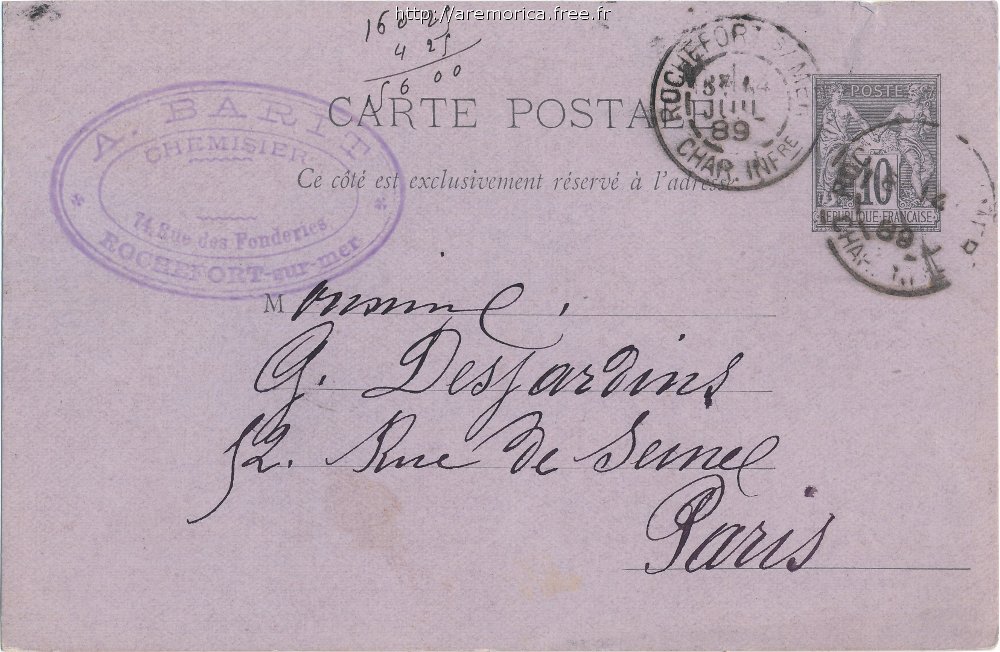 http://aremorica.free.fr
4 25
CARTE POSTALE
Ce côté est exclusivement réservé à l'adresse.
A. BARIT
CHEMISIER
74, Rue des Fonderies
ROCHEFORT-sur-mer
ROCHEFORT S/ MER
JUIL
89
CHAR. INFRE
POSTE
10
REPUBLIQUE FRANÇAISE
89
Monsieur
G. Desjardins
52. Rue de Seine
Paris